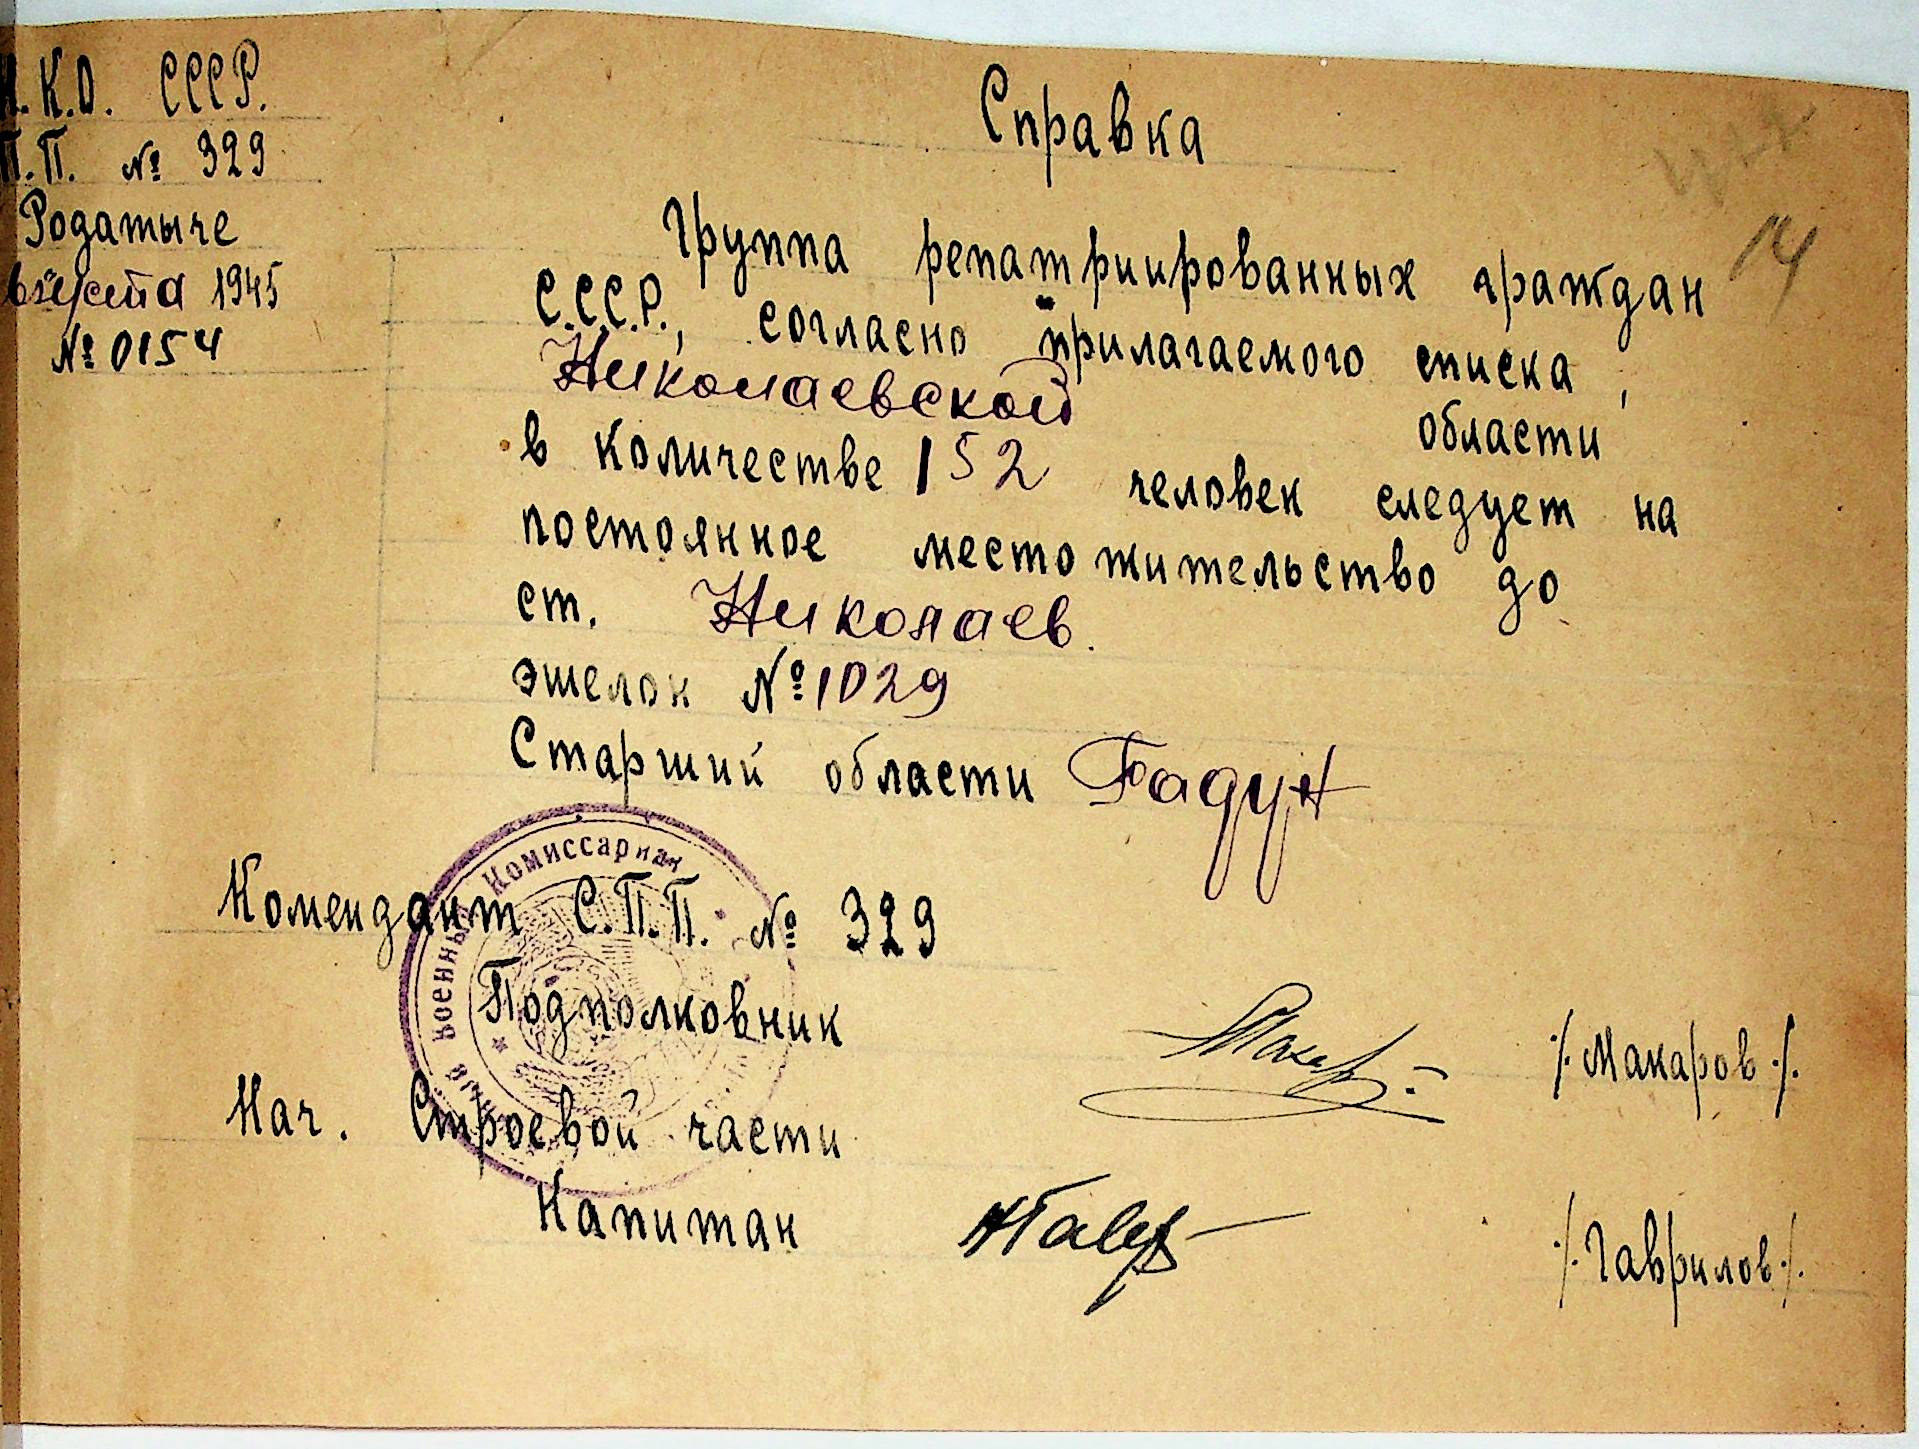 Н.К.О. СССР.
П.П. № 329
Родатыче
августа 1945
№ 0154
Справка
14
Группа репатриированных граждан
С.С.С.Р., согласно прилагаемого списка,
Николаевской области
в количестве 152 человек следует на
постоянное место жительство до
ст. Николаев.
эшелон № 1029
Старший области Бадун
Комендант С.П.П. № 329
Подполковник
/Макаров/.
Нач. Строевой части
Капитан
/Гаврилов/.
Военный Комиссариат